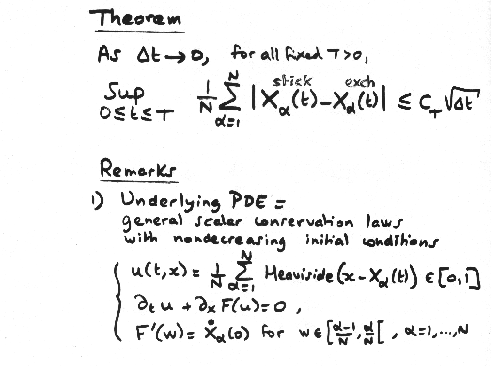 Theorem
As Δt→0, for all fixed T>0,
Sup 0≤t≤T 1/N Σ_{α=1}^{N} |X_α^{stick}(t) − X_α^{exch}(t)| ≤ C_T √Δt
Remarks
1) Underlying PDE =
general scalar conservation laws
with nondecreasing initial conditions
u(t,x) = 1/N Σ_{α=1}^{N} Heaviside(x − X_α(t)) ∈ [0,1]
∂_t u + ∂_x F(u) = 0,
F'(w) = Ẋ_α(0) for w ∈ [α-1/N, α/N[, α=1,...,N